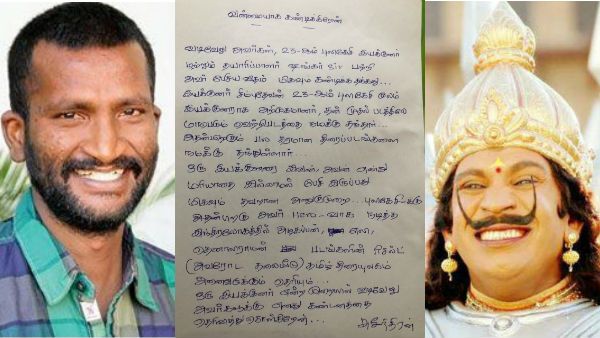 வன்மையாக கண்டிக்கிறேன்
வடிவேலு அவர்கள், 23-ஆம் புலிகேசி இயக்குனர்
மற்றும் தயாரிப்பாளர் ஷங்கர் Sir பற்றி
அவர் பேசிய விதம் மிகவும் கண்டிக்கதக்கது...
இயக்குனர் சிம்புதேவன் 23-ஆம் புலிகேசி மூலம்
இயக்குனராக அறிமுகமானார், தன் முதல் படத்திலே
மாபெரும் வெற்றிபடத்தை நமக்கு தந்தார்...
அதன்பிறகும் பல தரமான திரைப்படங்களை
நமக்கு தந்துள்ளார்...
ஒரு இயக்குனரை அவன், இவன் என்று
மரியாதை இல்லாமல் பேசி இருப்பது
மிகவும் தவறான அணுகுமுறை.. புலிகேசிக்கு
அதன்பிறகு அவர் Hero-வாக நடித்த
இந்திரலோகத்தில் அழகப்பன், எலி,
தெனாலிராமன் படங்களின் ரிசல்ட்
(அவரோட தலையீடு) தமிழ் திரையுலகம்
அனைவருக்கும் தெரியும்..
ஒரு இயக்குனர் என்ற முறையில் வடிவேலு
அவர்களுக்கு எனது கண்டனத்தை
தெரிவித்து கொள்கிறேன்...
சுசீந்திரன்